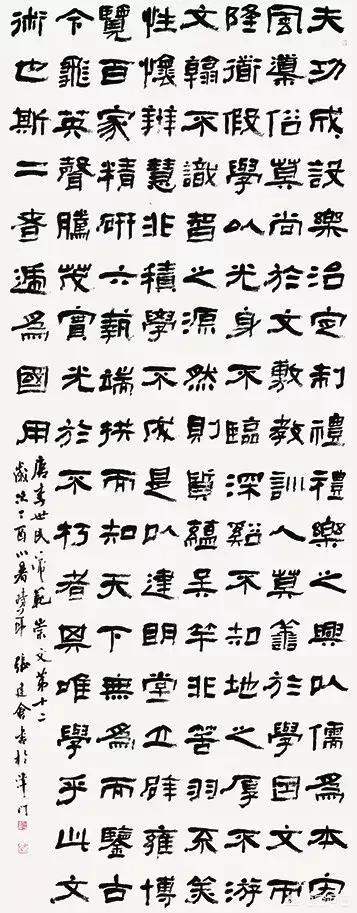 夫功成設樂治定制禮禮樂之興以儒爲本宏
風導俗莫尚於文敷教訓人莫善於學因文而
隆道假學以光身不臨深谿不知地之厚不游
文翰不識智之源然則質蘊吳竿非筈羽不美
性懷辨慧非積學不成是以建明堂立辟雍博
覽百家精研六埶端拱而知天下無爲而鑒古
今飛英聲騰茂實光於不朽者其唯學乎此文
術也斯二者遞爲國用
唐李世民帝範崇文第十二
歲次丁酉小暑時節張建會書於津門